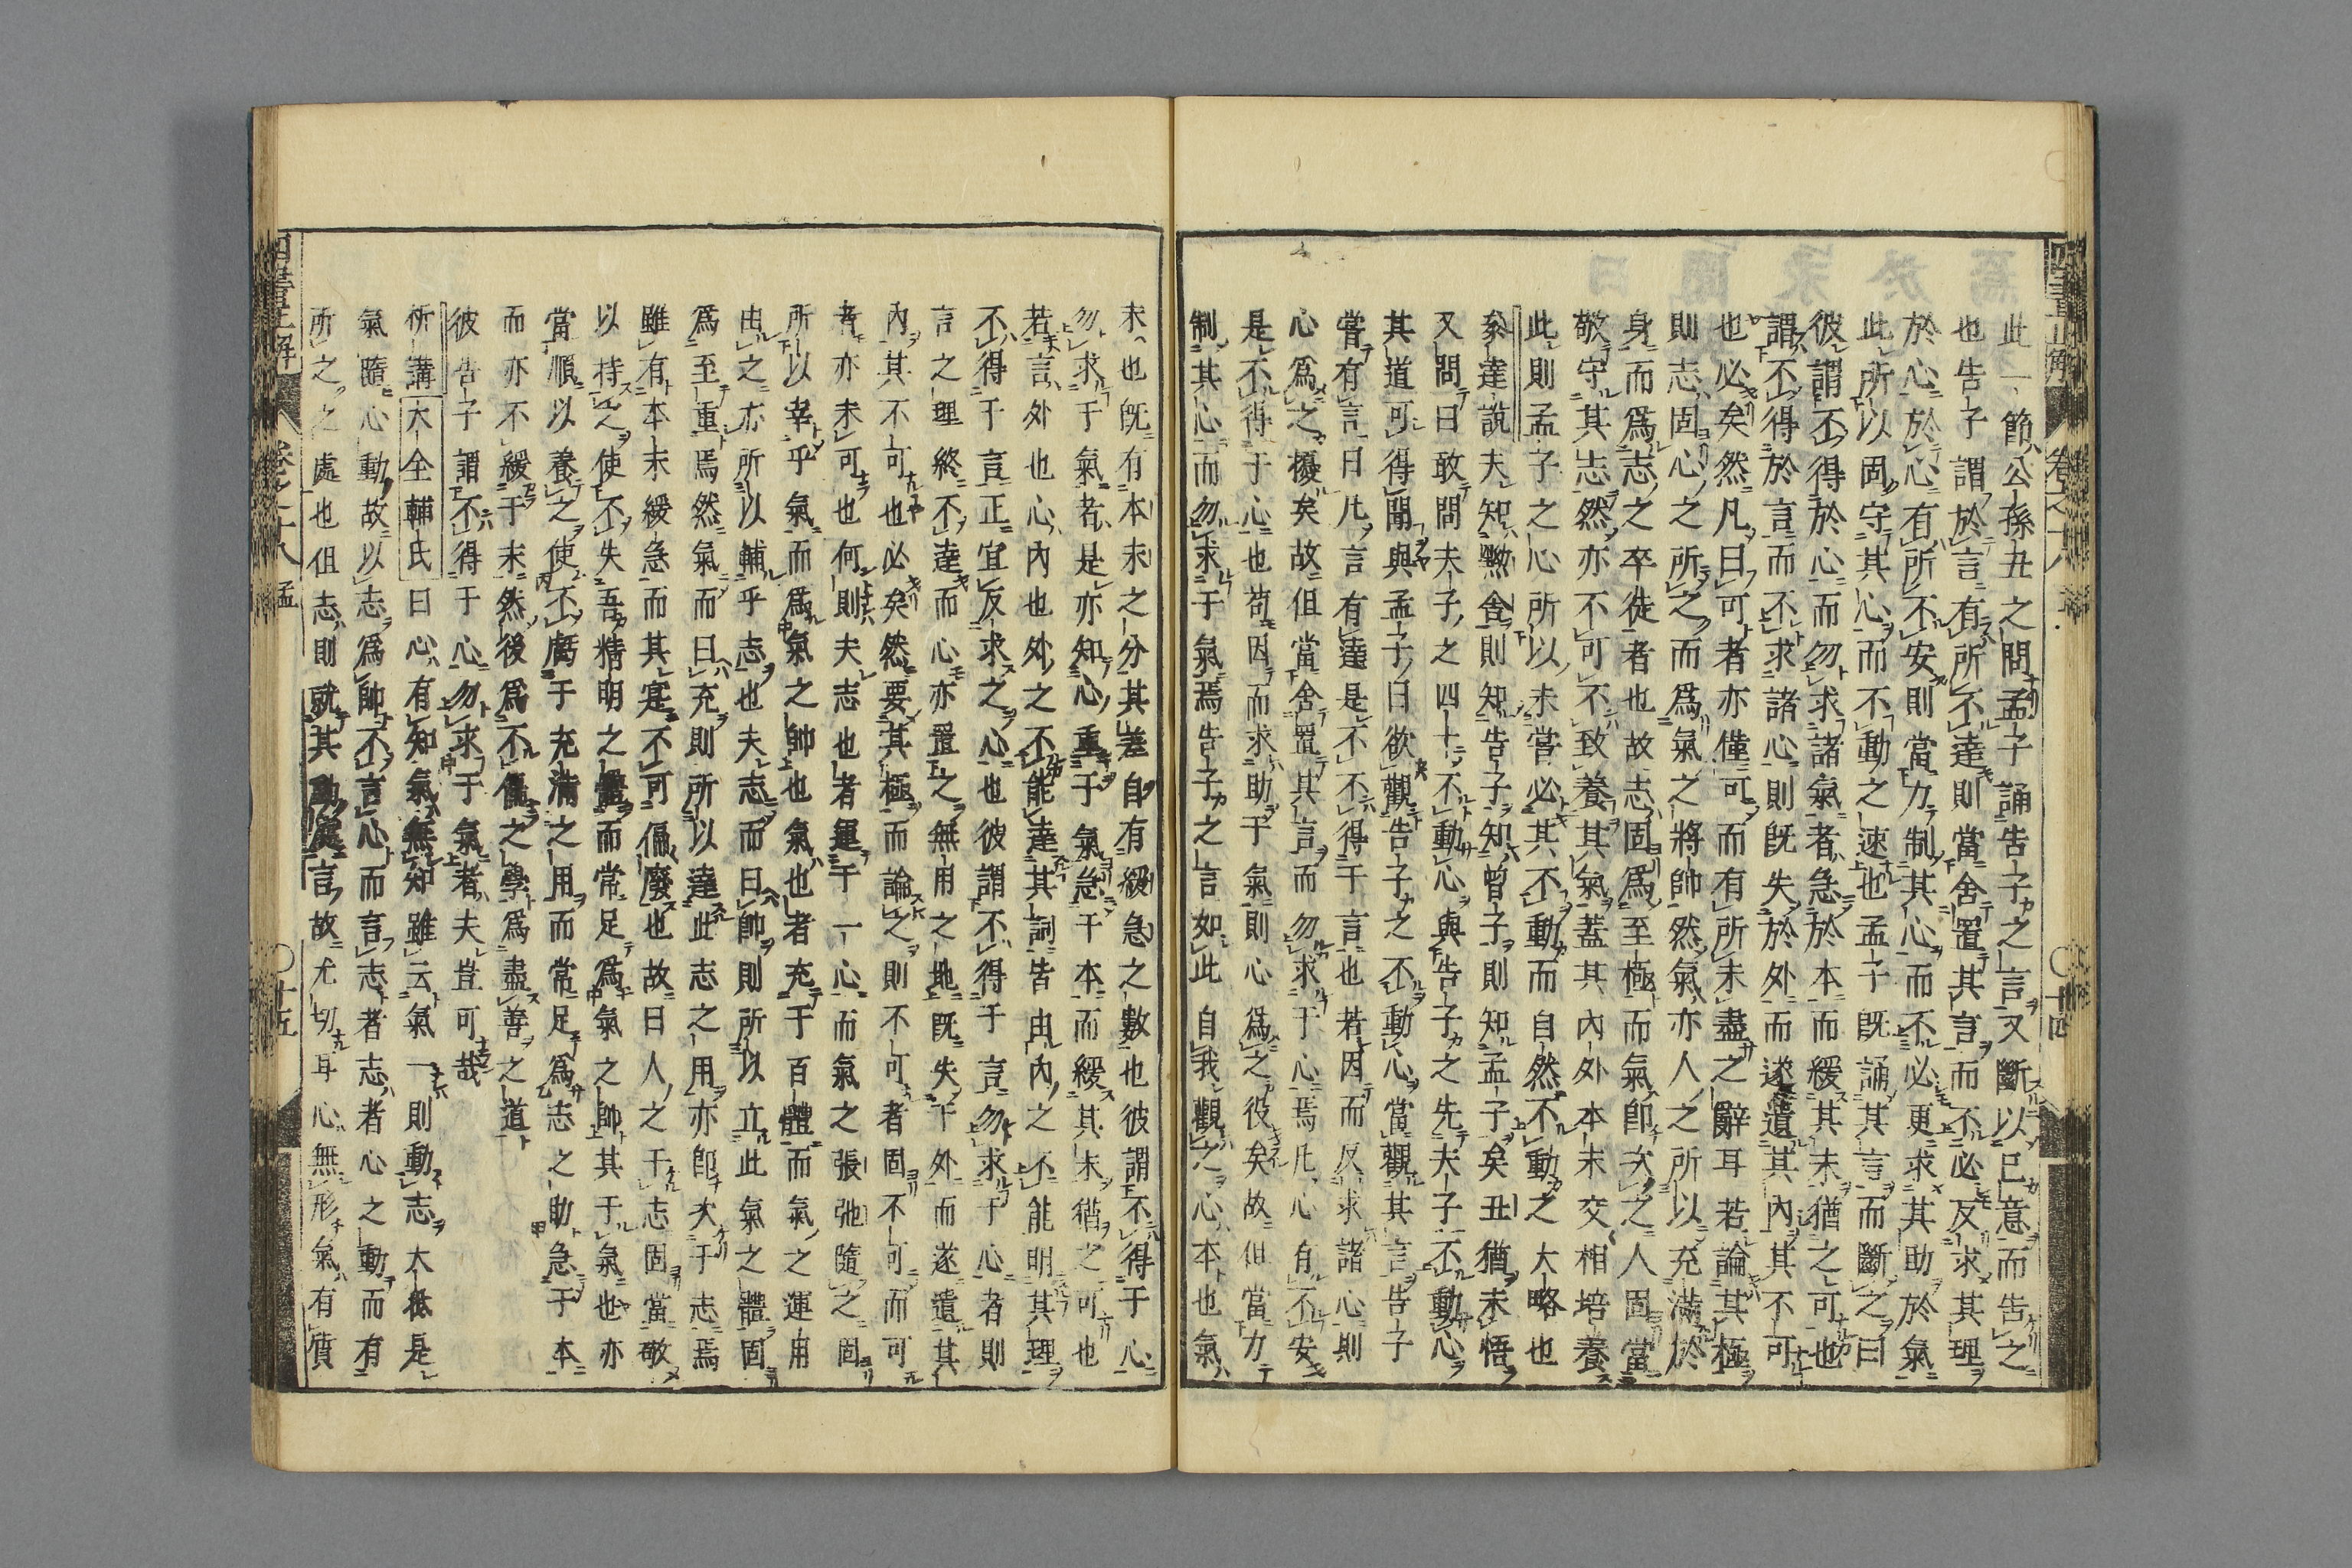 此一節公孫丑之問孟子誦告子之言又斷以已意而告之
也告子謂於言有所不達則當舍置其言而不必反求其理
於心於心有所不安則當力制其心而不必更求其助於氣
此所以固守其心而不動之速也孟子既誦其言而斷之曰
彼謂不得於心而勿求諸氣者急於本而緩其末猶之可也
謂不得於言而不求諸心則既失於外而遂遺其內其不可
也必矣然凡曰可者亦僅可而有所未盡之辭耳若論其極
則志固心之所之而爲氣之將帥然氣亦人之所以充滿於
身而爲志之卒徒者也故志固爲至極而氣即次之人固當
敬守其志然亦不可不致養其氣蓋其內外本末交相培養
此則孟子之心所以未嘗必其不動而自然不動之大略也
叅達說夫知黝舍則知告子知曾子則知孟子矣丑猶未悟
又問曰敢問夫子之四十不動心與告子之先夫子不動心
其道可得聞與孟子曰欲觀告子之不動心當觀其言告子
嘗有言曰凡言有達是不不得于言也若因而反求諸心則
心爲之擾矣故但當舍置其言而勿求于心焉凡心有不安
是不得于心也苟因而求助于氣則心爲之役矣故但當力
制其心而勿求于氣焉告子之言如此自我觀之心本也氣
末也既有本末之分其差自有緩急之數也彼謂不得于心
勿求于氣者是亦知心重于氣急于本而緩其末猶之可也
若言外也心內也外之不能達其詞皆由內之不能明其理
不得于言正宜反求之心也彼謂不得于言勿求于心者則
言之理終不達而心亦置之無用之地既失于外而遂遺其
內其不可也必矣然要其極而論之則不可者固不可而可
者亦未可也何則夫志也者運于一心而氣之張弛隨之固
所以幸乎氣而爲氣之帥也氣也者充于百體而氣之運用
由之亦所以輔乎志也夫志而曰帥則所以立此氣之體固
爲至重焉然氣而曰充則所以達此志之用亦即次于志焉
雖有本末緩急而其寔不可偏廢也故曰人之于志固當敬
以持之使不失吾精明之體而常足爲氣之帥其于氣也亦
當順以養之使不虧于充滿之用而常足爲志之助急于本
而亦不緩于末然後爲不偏之學爲盡善之道
彼告子謂不得于心勿求于氣者夫豈可哉
所講大全輔氏曰心有知氣無知雖云氣一則動志大抵是
氣隨心動故以志爲帥不言心而言志者志者心之動而有
所之之處也但志則就其動處言故尤切耳心無形氣有質
四書正解
卷之十八
孟
〇十四
四書正解
卷之十八
孟
〇十五